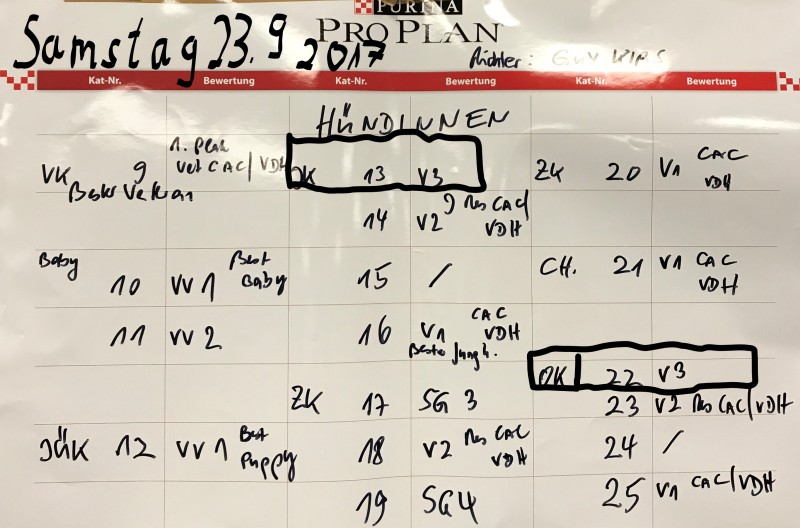 PURINA
PRO PLAN
Samstag 23.9 2017
Richter: Guy
Kat-Nr. Bewertung Kat-Nr. Bewertung Kat-Nr. Bewertung
HÜNDINNEN
VK 9 1. Platz Vet CAC/VDH
Bester Veteran
JK 13 V3
14 V2 Res CAC/VDH
Baby
10 VV1 Best Baby
11 VV2
15 /
16 V1 CAC VDH
Bester Jungh.
ZK 17 SG 3
JüK 12 VV1 Best Puppy
18 V2 Res CAC VDH
19 SG4
ZK 20 V1 CAC VDH
CH. 21 V1 CAC VDH
OK 22 V3
23 V2 Res CAC/VDH
24 /
25 V1 CAC/VDH